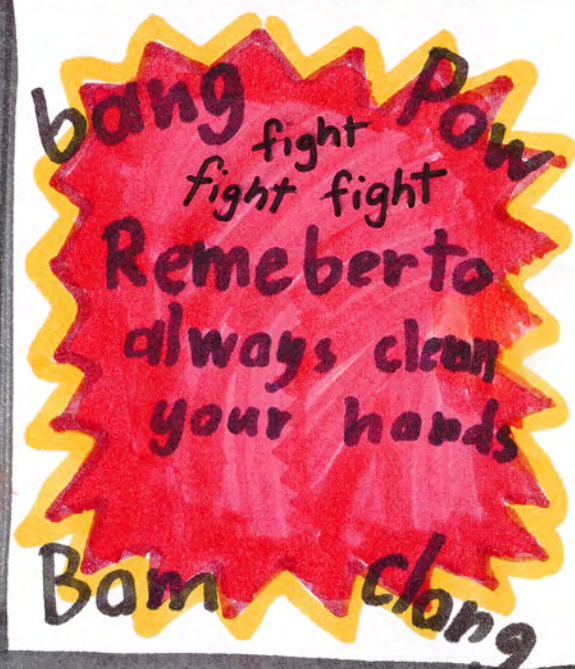 bang Pow
fight
fight fight
Remeberto
always clean
your hands
Bam clang